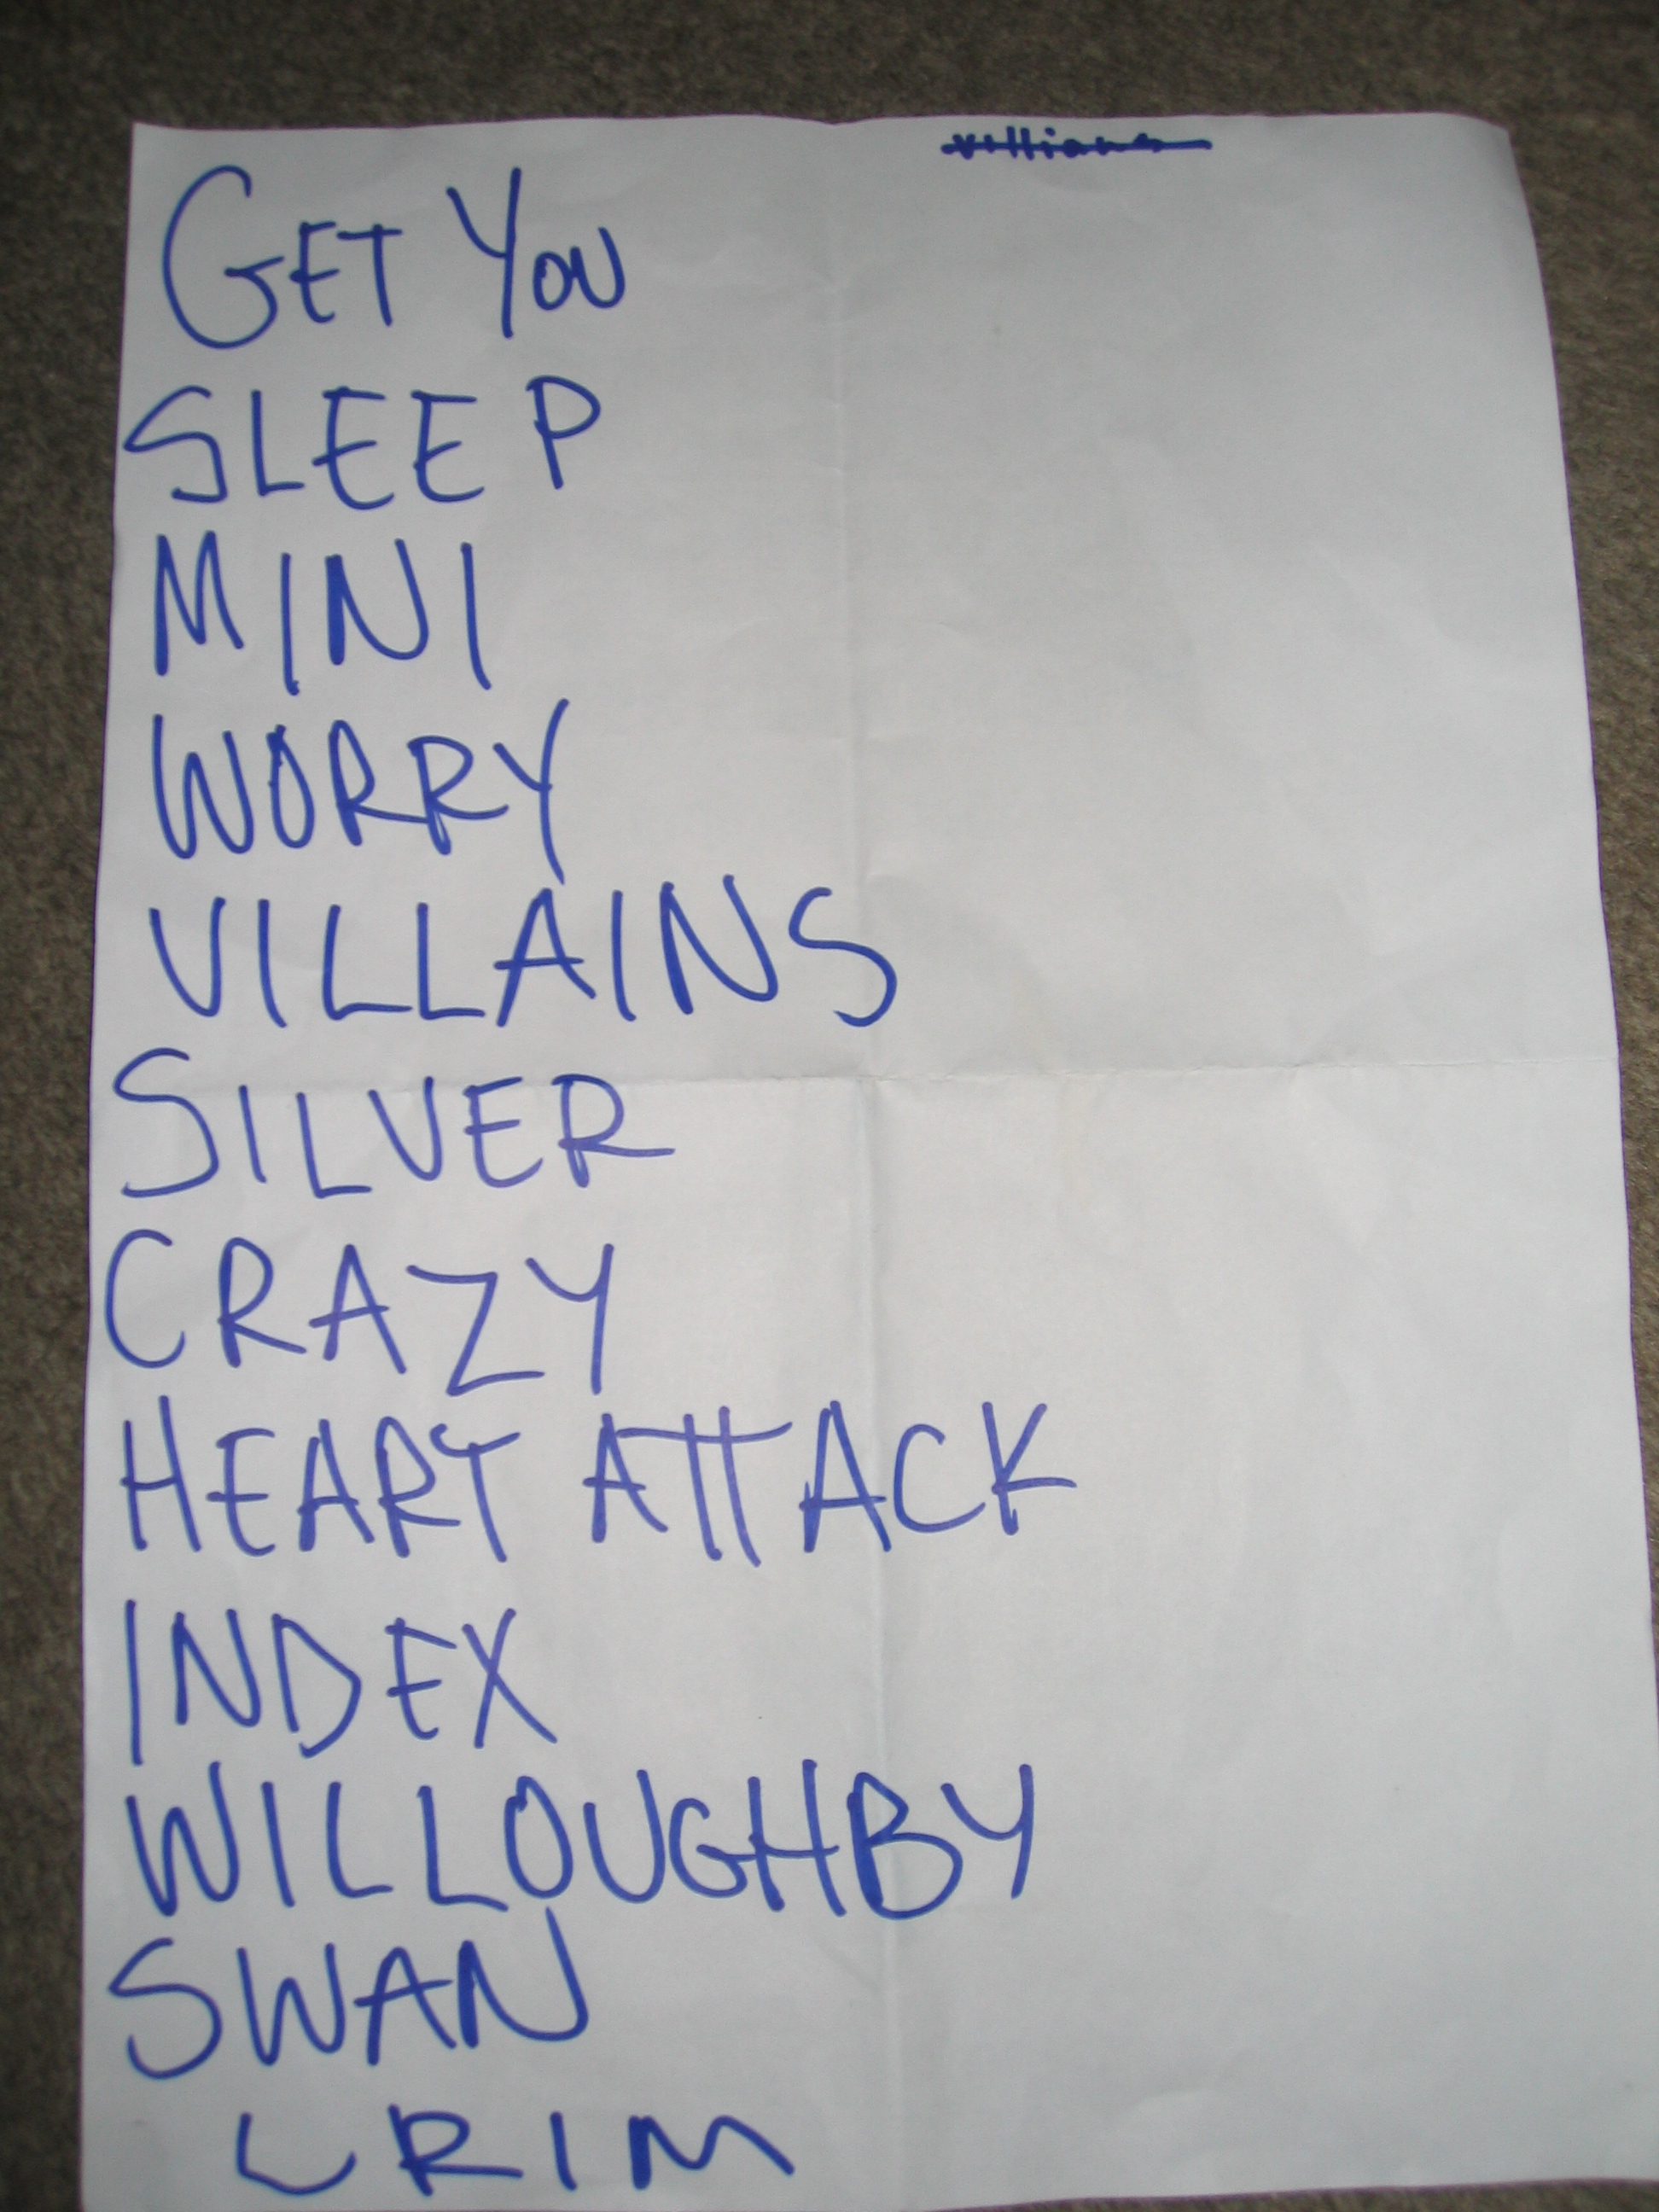 villians
GET YOU
SLEEP
MINI
WORRY
VILLAINS
SILVER
CRAZY
HEART ATTACK
INDEX
WILLOUGHBY
SWAN
CRIM